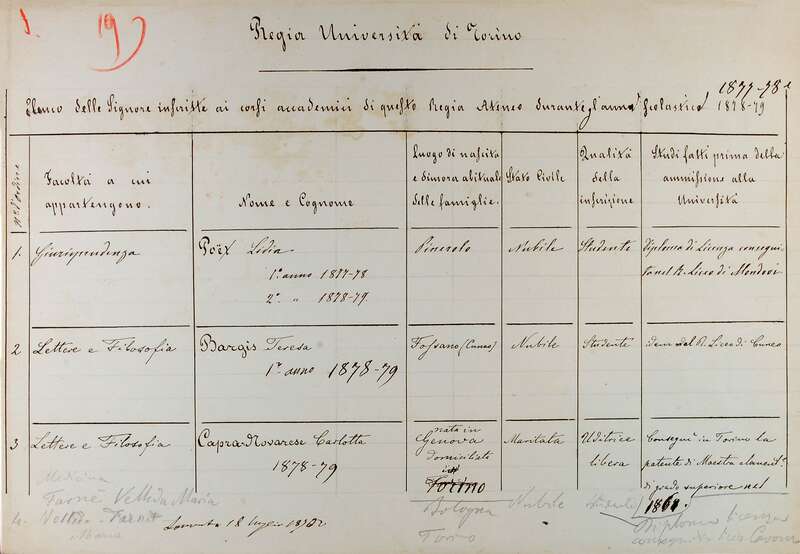 1. 19)
Regia Università di Torino
1877-78 e
Elenco delle Signore inscritte ai corsi accademici di questo Regia Ateneo durante gl'anni scolastici 1878-79
N° d'ordine
Facoltà a cui
appartengono.
Nome e Cognome
Luogo di nascita
e dimora abituale
delle famiglie.
Stato Civile
Qualità
della
inscrizione
Studi fatti prima della
ammissione alla
Università
1. Giurisprudenza
Poët Lidia
1° anno 1877-78
2° " 1878-79.
Pinerolo
Nubile
Studente
Diploma di Licenza consegui
to nel R. Liceo di Mondovì
2 Lettere e Filosofia
Bargis Teresa
1° anno 1878-79
Fossano (Cuneo)
Nubile
Studente
Idem del R. Liceo di Cuneo
3 Lettere e Filosofia
Capra-Novarese Carlotta
1878-79
nata in
Genova
domiciliata
in
Torino
Maritata
Uditrice
libera
Conseguì in Torino la
patente di Maestra element.
di grado superiore nel
1868.
Medicina
Farnè Velleda Maria
4. Velleda Farnè
Maria
Bologna
Torino
Nubile
Studente
Diploma licenza
Liceo Cavour